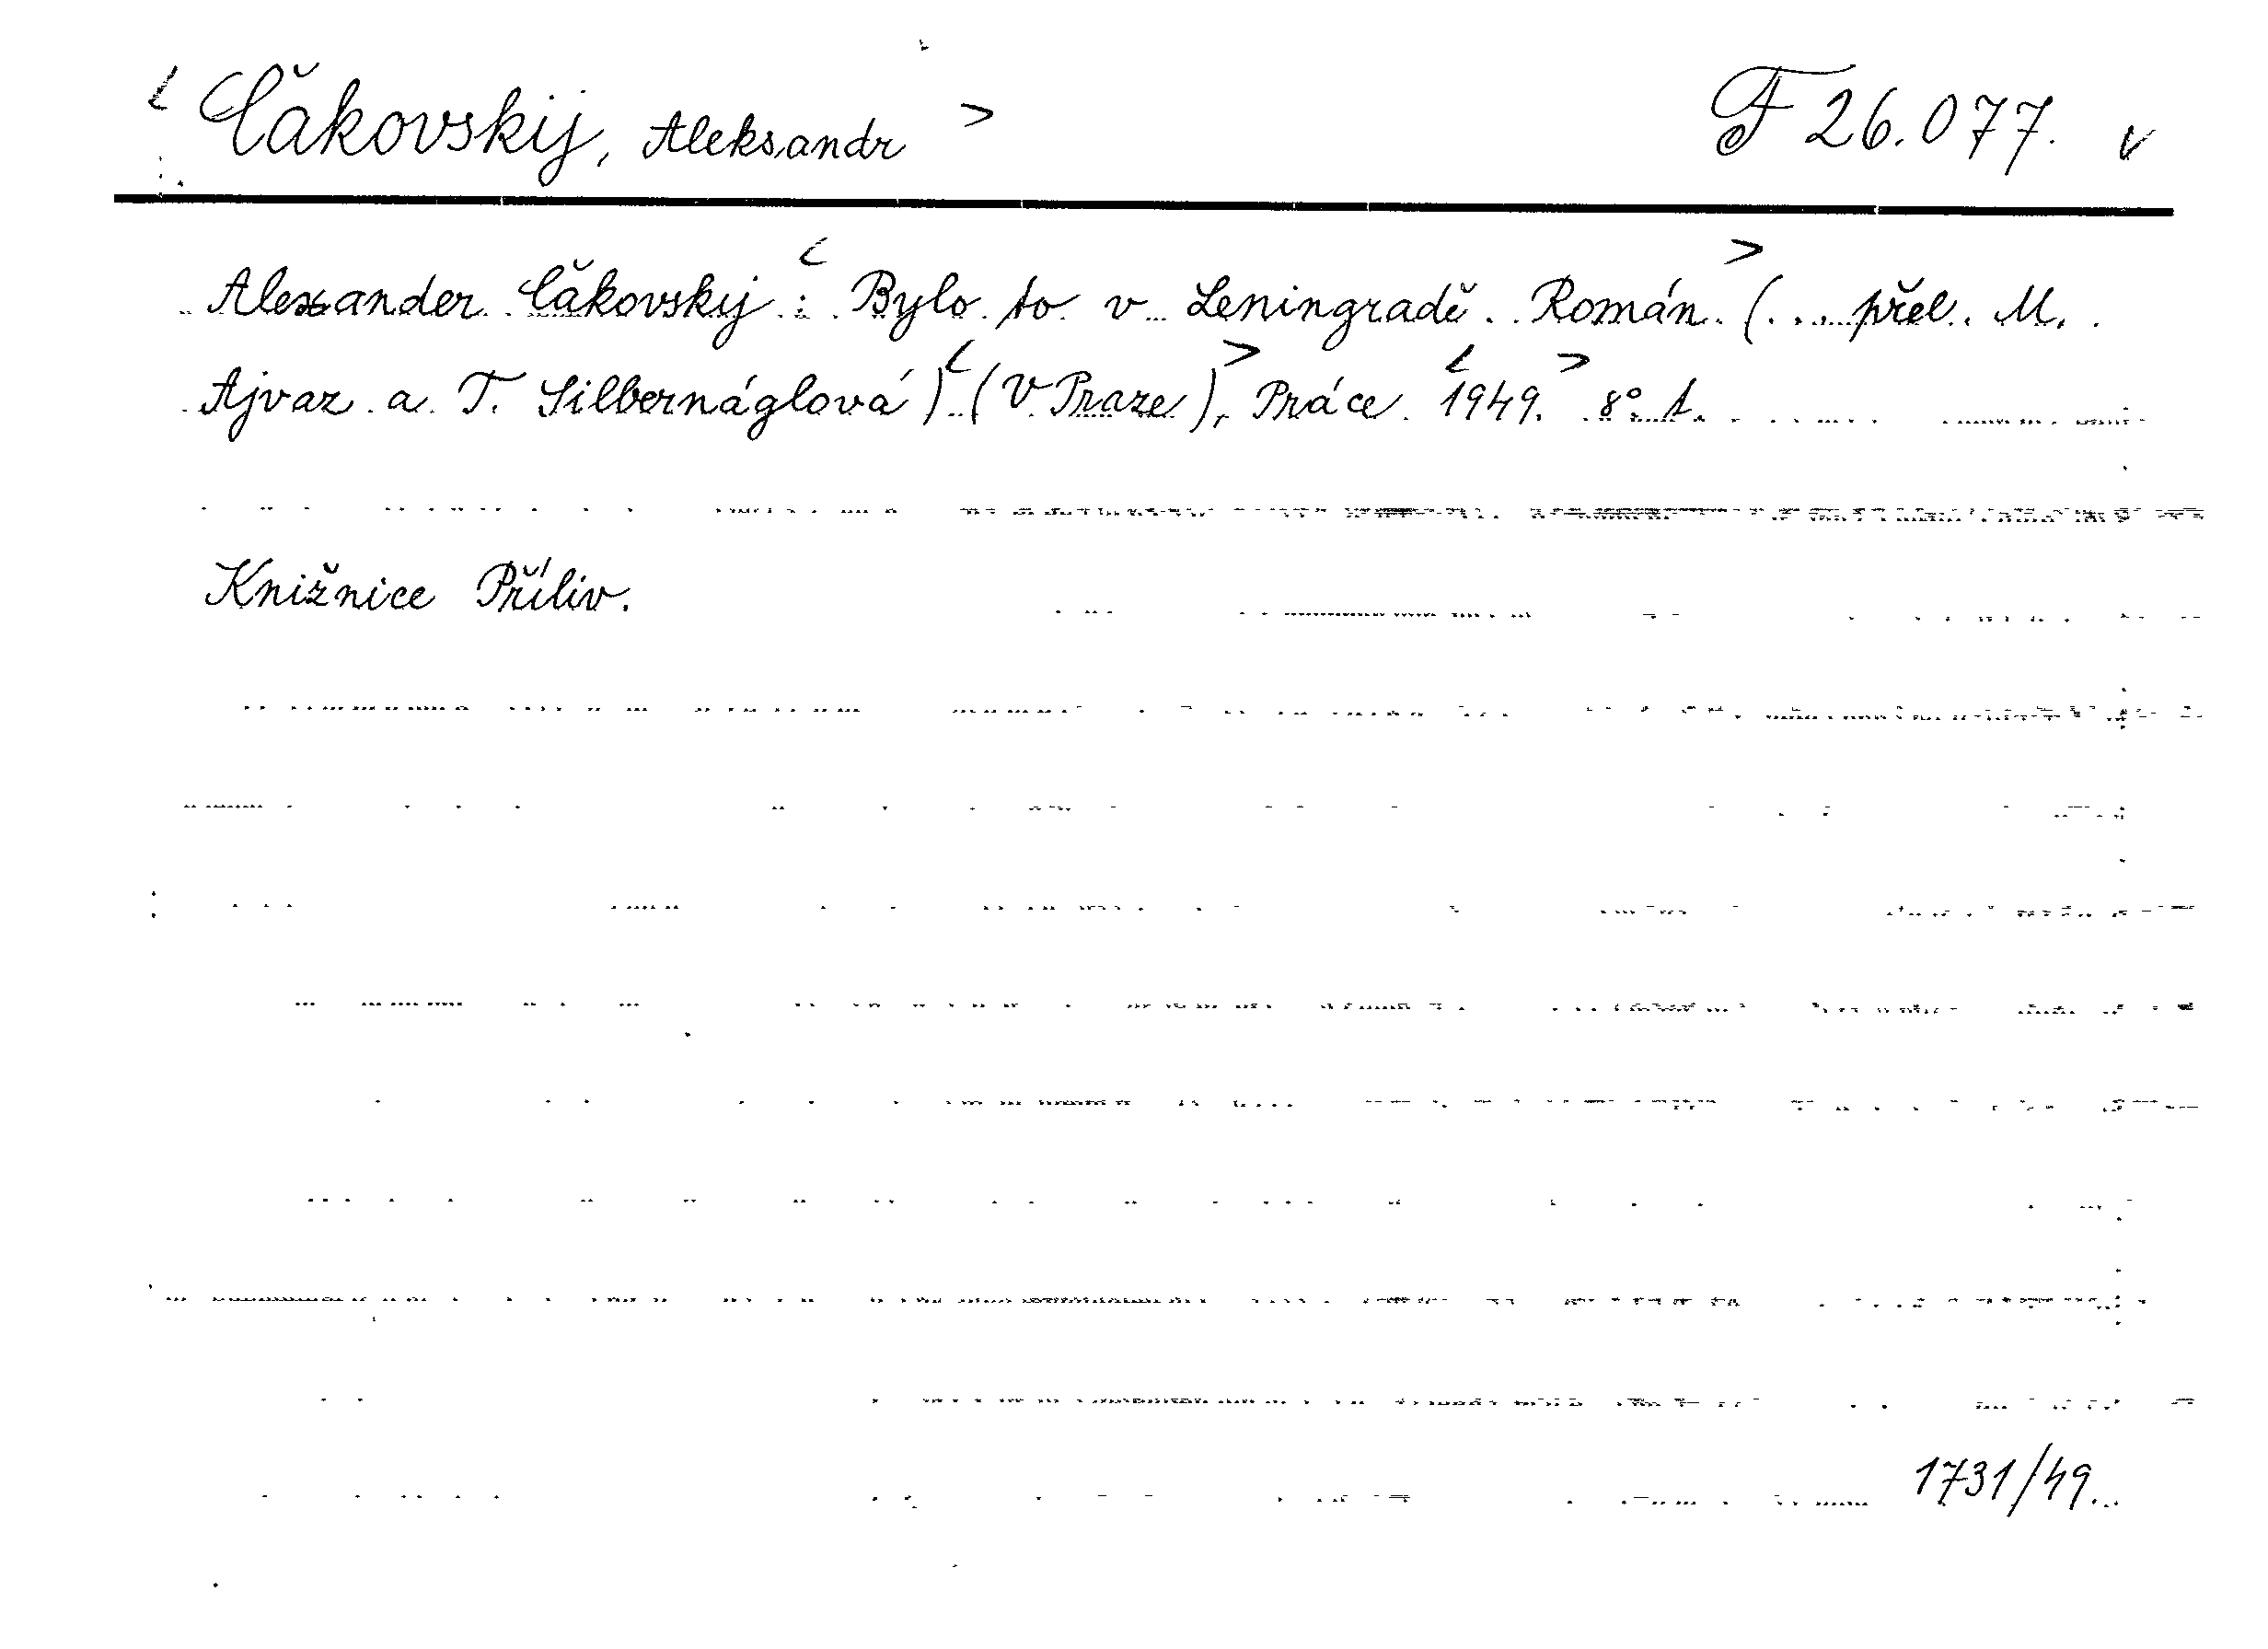 < Čakovskij, Aleksandr > F 26.077. v
Alexander Čakovskij : < Bylo to v Leningradě. Román > (... přel. M.
Ajvaz a T. Silbernáglová) < (V Praze), > Práce < 1949. > 8°. 1.
Knižnice Příliv.
1731/49.